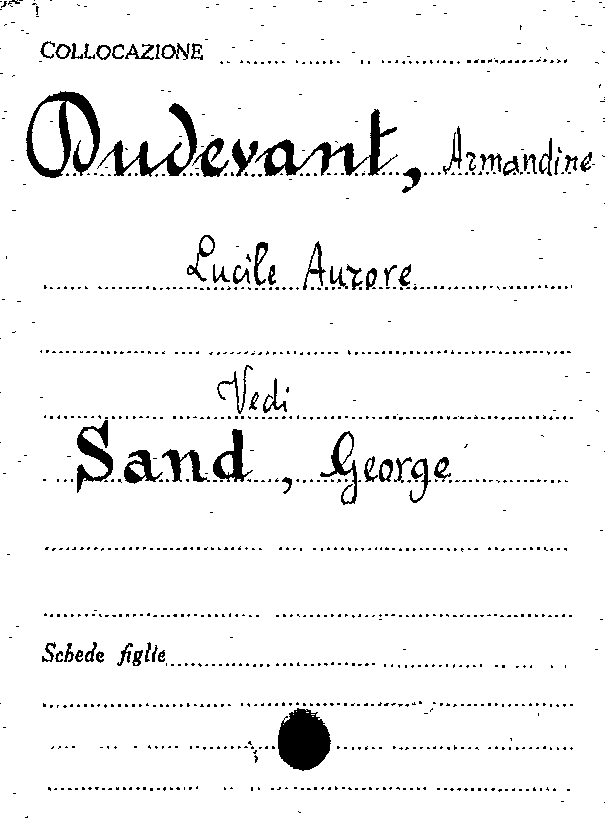 COLLOCAZIONE
Dudevant, Armandine
Lucile Aurore
Vedi
Sand, George
Schede figlie